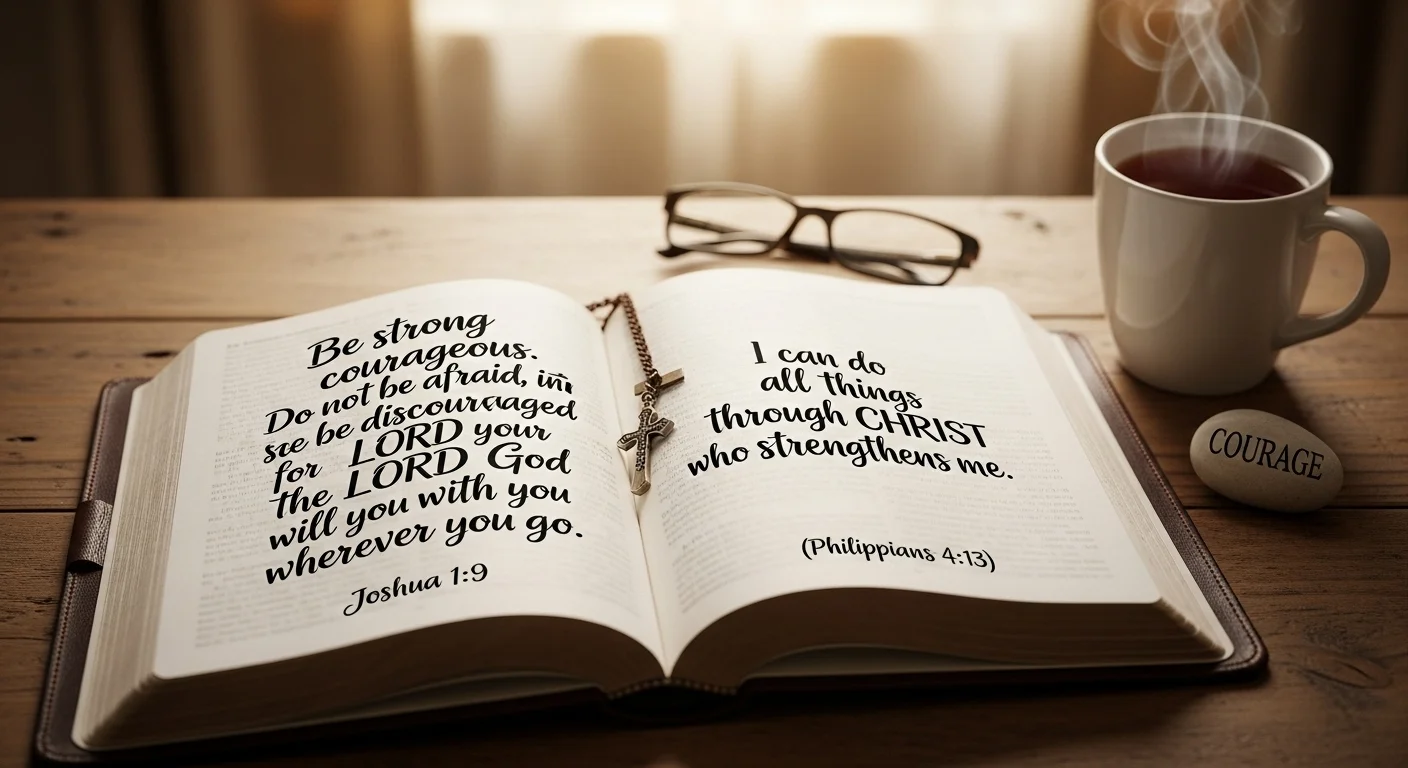 Be strong
courageous.
Do not be afraid,
be discourraged
for LORD your
the LORD God
will you with you
wherever you go.
Joshua 1:9
I can do
all things
through CHRIST
who strengthens me.
(Philippians 4:13)
COURAGE